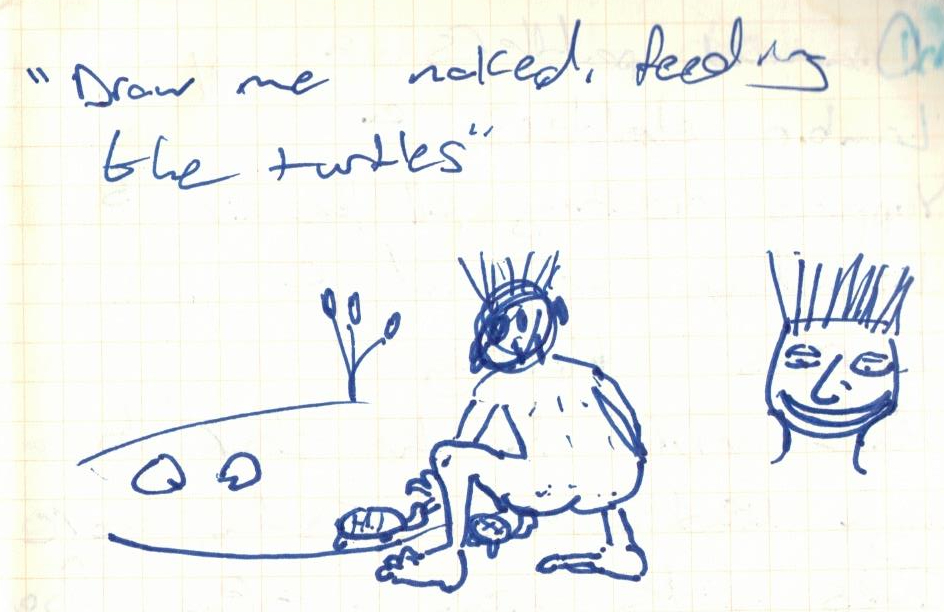 "Draw me naked, feeding
the turtles"